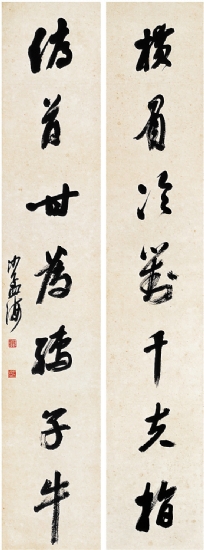 横眉冷對千夫指
俯首甘為孺子牛
沙孟海